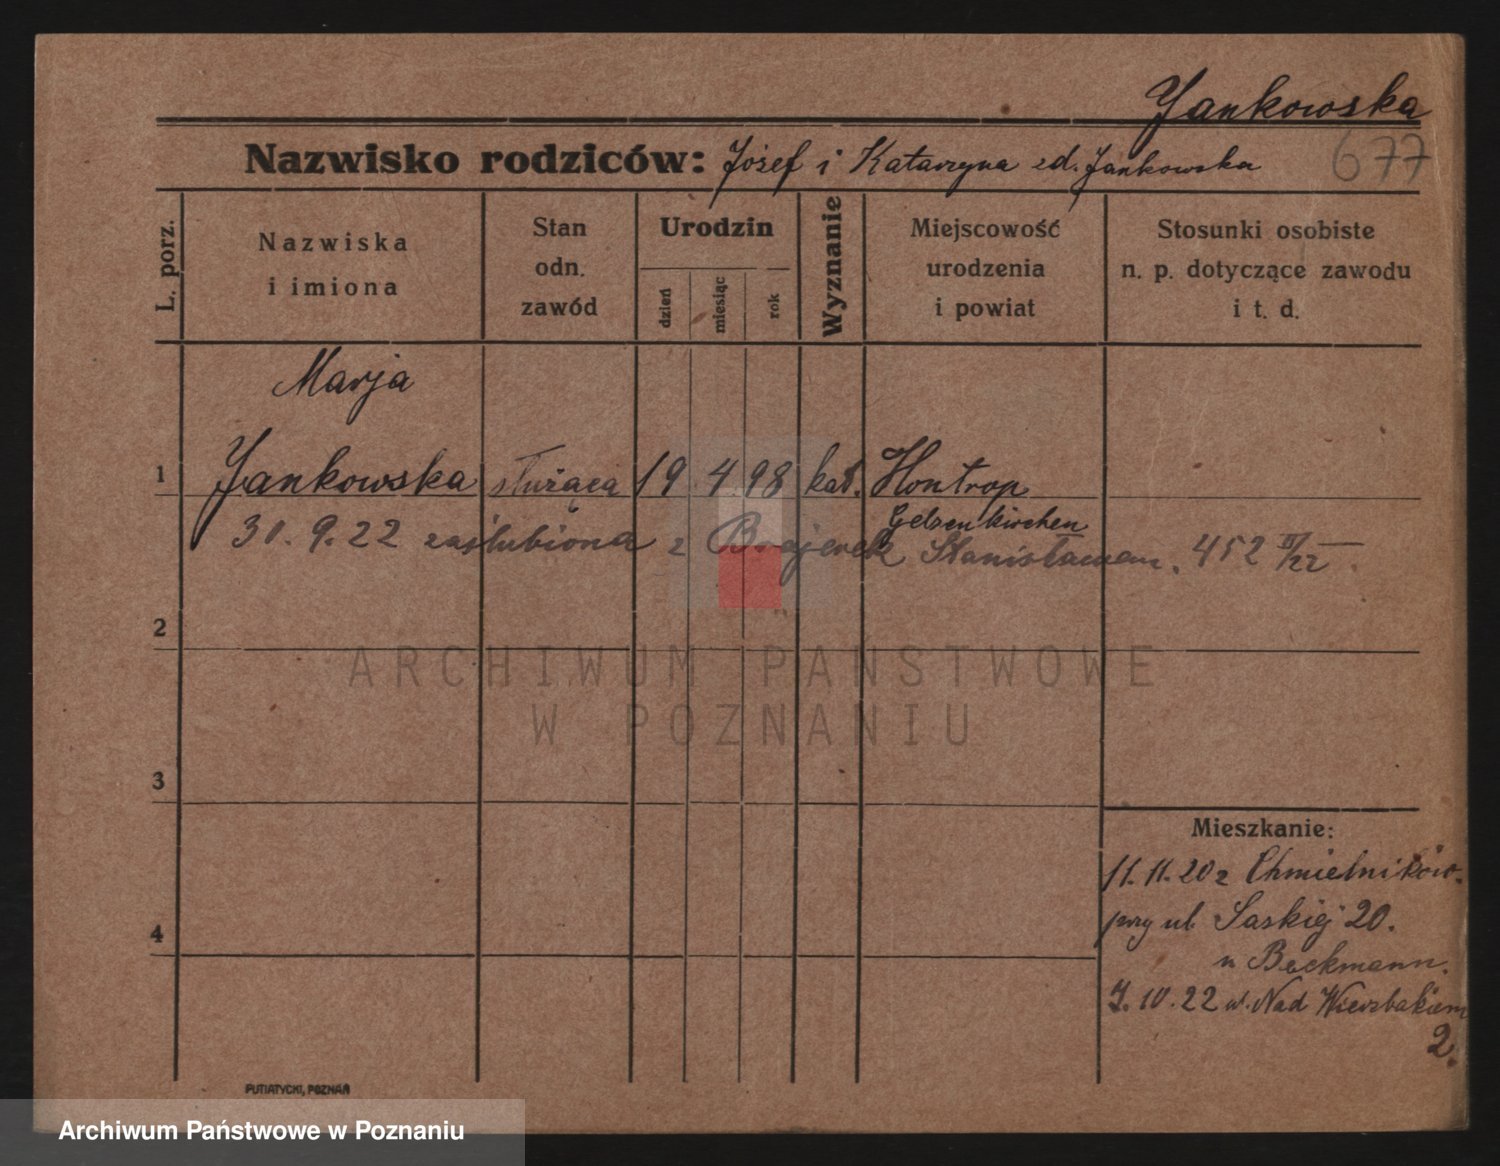 Jankowska
Nazwisko rodziców: Józef i Katarzyna zd. Jankowska 677
L. porz.
Nazwiska
i imiona
Stan
odn.
zawód
Urodzin
dzień
miesiąc
rok
Wyznanie
Miejscowość
urodzenia
i powiat
Stosunki osobiste
n. p. dotyczące zawodu
i t. d.
Marja
1 Jankowska służąca 19 4 98 kat. Hontrop
Gelsenkirchen
30. 9. 22 zaślubiona z Stanisławem. 452
2
3
4
Mieszkanie:
11. 11. 20 z Chmielników.
przy ul. Saskiej 20.
u Beckmann.
10. 22 ul. Nad Wierzbakiem
2.
PUTIATYCKI, POZNAŃ
ARCHIWUM PAŃSTWOWE
W POZNANIU
Archiwum Państwowe w Poznaniu